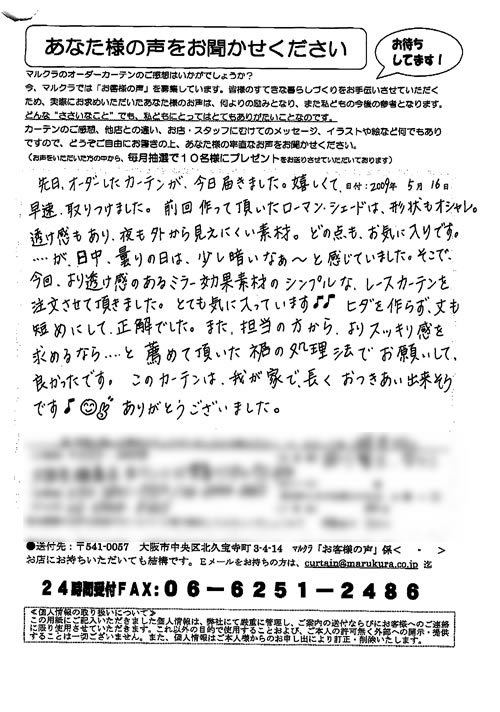 あなた様の声をお聞かせください
お待ち
してます!
マルクラのオーダーカーテンのご感想はいかがでしょうか?
今、マルクラでは「お客様の声」を募集しています。皆様のすてきな暮らしづくりをお手伝いさせていただく
ため、実際にお求めいただいたあなた様のお声は、何よりの励みとなり、また私どもの今後の参考となります。
どんな“ささいなこと”でも、私どもにとってはとてもありがたいことなのです。
カーテンのご感想、他店との違い、お店・スタッフにむけてのメッセージ、イラストや絵など何でもあり
ますので、どうぞご自由にお書きの上、あなた様の率直なお声をお聞かせください。
(お声をいただいた方の中から、毎月抽選で10名様にプレゼントをお送りさせていただいております)
先日、オーダーしたカーテンが、今日届きました。嬉しくて、日付:2009年 5月16日
早速、取りつけました。前回作って頂いたローマン・シェードは、形状もオシャレ。
透け感もあり、夜も外から見えにくい素材。どの点も、お気に入りです。
…が、日中、曇りの日は、少し暗いなぁ〜と感じていました。そこで、
今回、より透け感のあるミラー効果素材のシンプルな、レースカーテンを
注文させて頂きました。とても気に入っています♪♪ ヒダを作らず、丈も
短めにして、正解でした。また、担当の方から、よりスッキリ感を
求めるなら…と薦めて頂いた裾の処理法でお願いして、
良かったです。このカーテンは、我が家で、長くおつきあい出来そう
です♪ ありがとうございました。
●送付先:〒541-0057 大阪市中央区北久宝寺町3-4-14 マルクラ「お客様の声」係< ・ >
お店にお持ちいただいても結構です。Eメールをお持ちの方は、curtain@marukura.co.jp 迄
24時間受付FAX:06-6251-2486
≪個人情報の取り扱いについて≫
この用紙にご記入いただきました個人情報は、弊社にて厳重に管理し、ご案内の送付ならびにお客様へのご連絡
に限り使用させていただきます。これ以外の目的で使用することおよび、ご本人の許可無く外部への開示・提供
することは一切ございません。また、個人情報はご本人様からのお申し出により訂正・削除いたします。